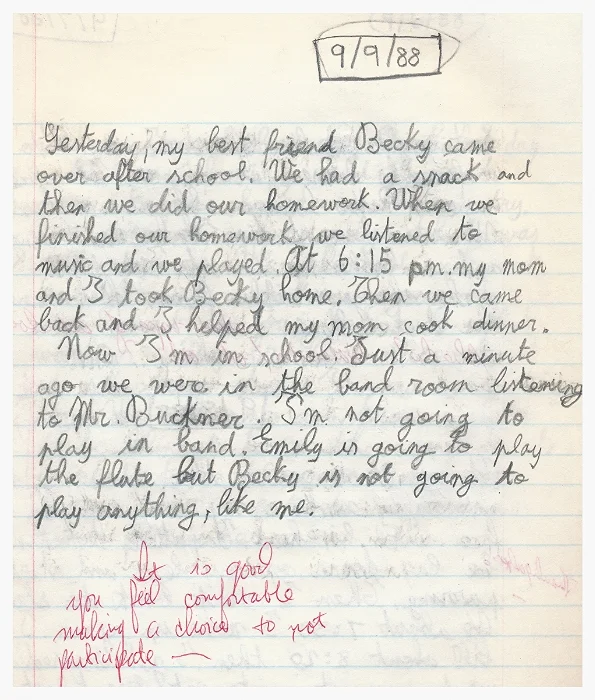 9/9/88
Yesterday, my best friend Becky came
over after school. We had a snack and
then we did our homework. When we
finished our homework we listened to
music and we played. At 6:15 pm. my mom
and I took Becky home. Then we came
back and I helped my mom cook dinner.
Now I'm in school. Just a minute
ago we were in the band room listening
to Mr. Buckner. I'm not going to
play in band. Emily is going to play
the flute but Becky is not going to
play anything, like me.
It is good
you feel comfortable
making a choice to not
participate —